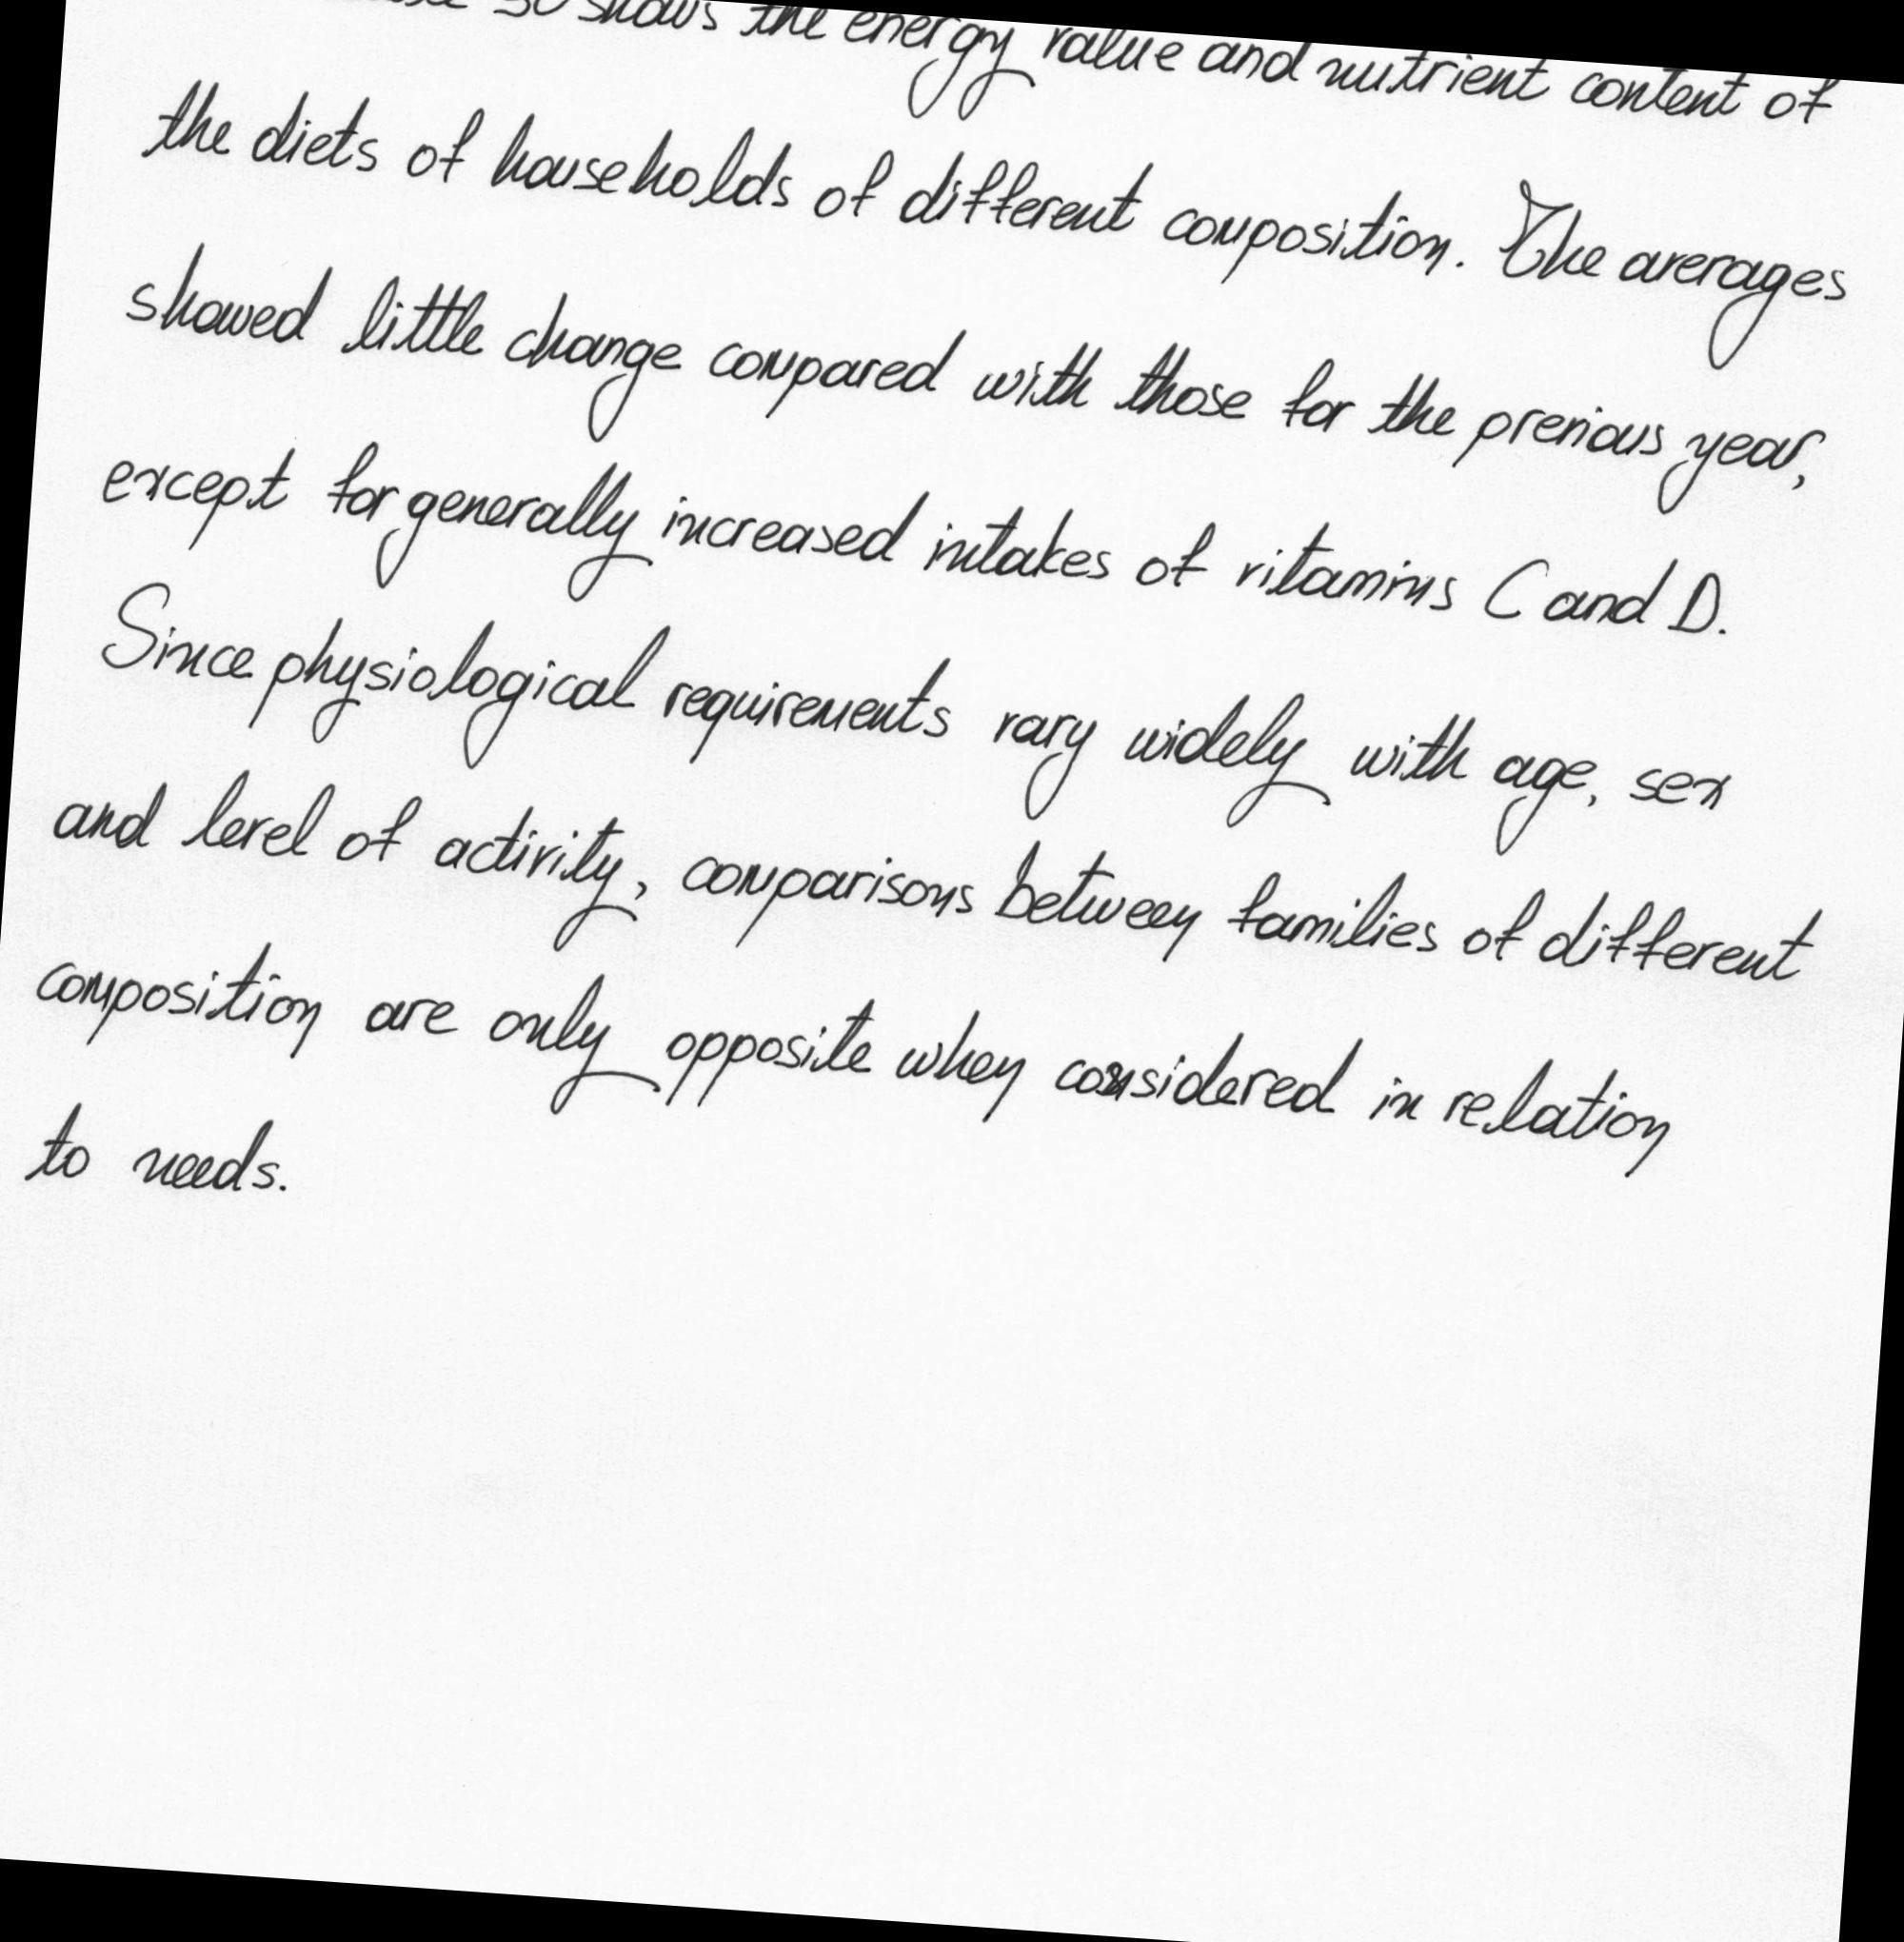 shows the energy value and nutrient content of
the diets of households of different composition. The averages
showed little change compared with those for the previous year,
except for generally increased intakes of vitamins C and D.
Since physiological requirements vary widely with age, sex
and level of activity, comparisons between families of different
composition are only opposite when considered in relation
to needs.